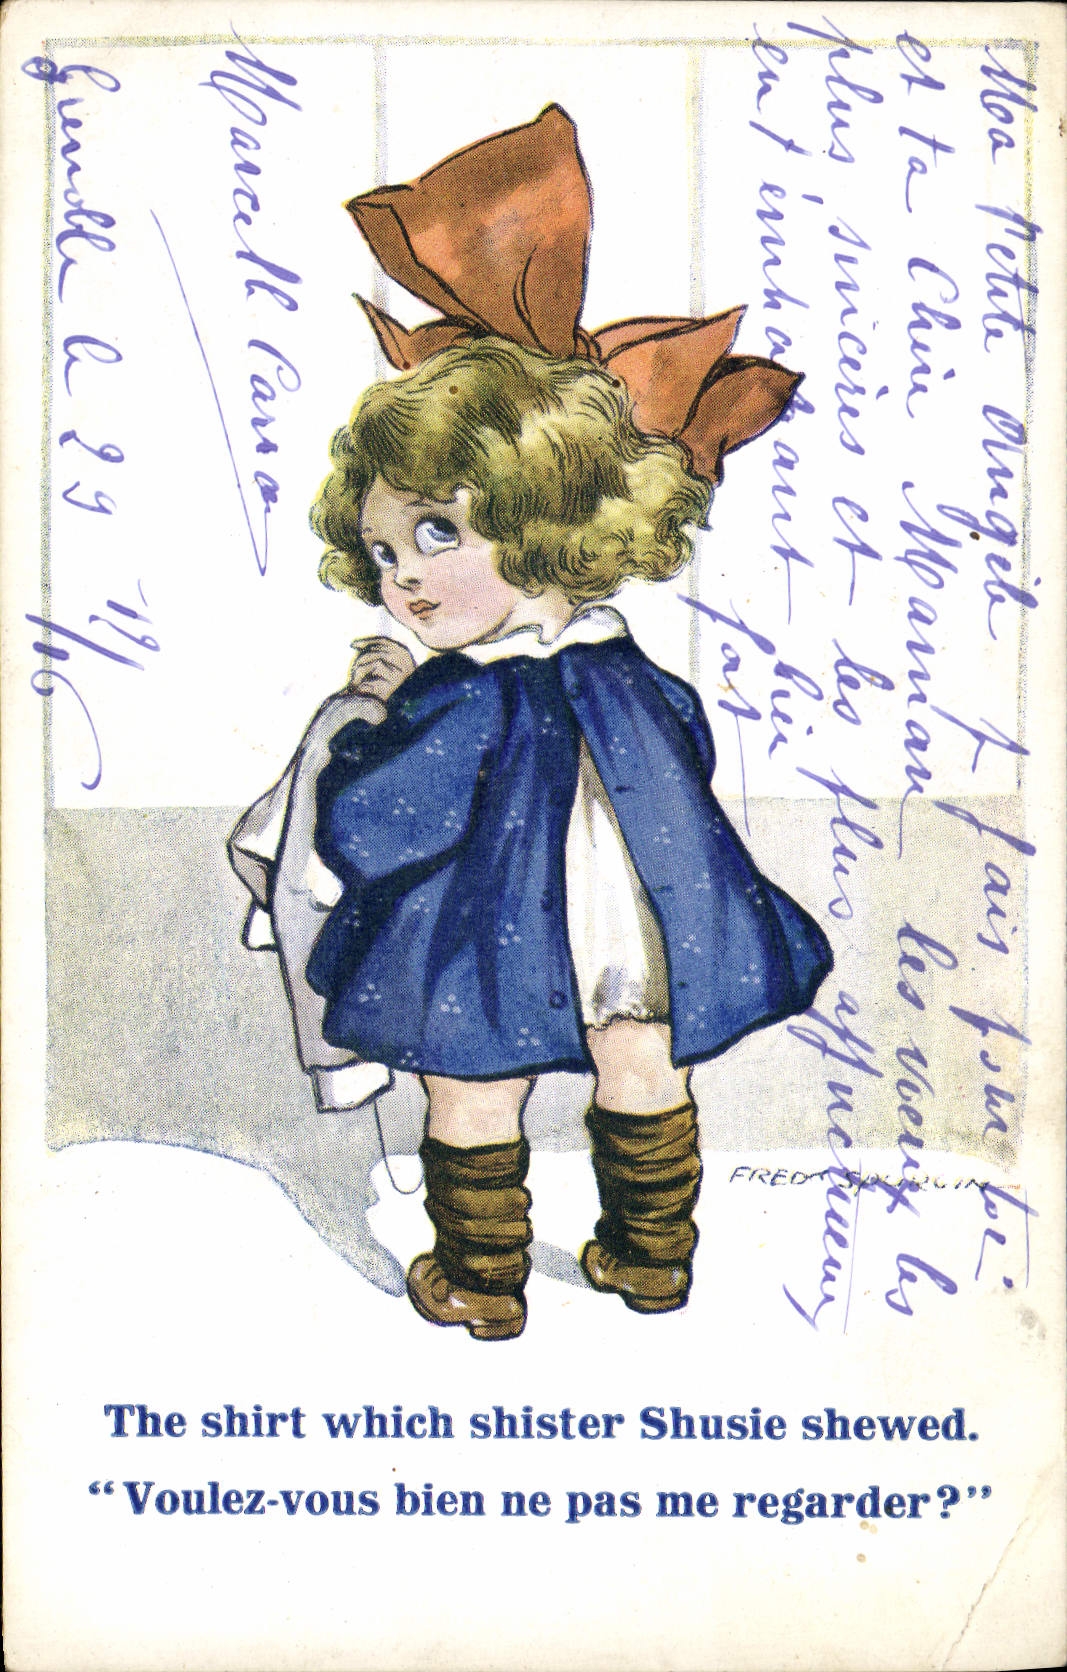 Ma Petite Angèle je fais pour toi
et ta Chère Maman les voeux les
plus sincères et les plus affectueux
en t'embrassant bien
fort
Marcelle
Grenoble le 29 12/16
FRED SPURGIN
The shirt which shister Shusie shewed.
“Voulez-vous bien ne pas me regarder?”